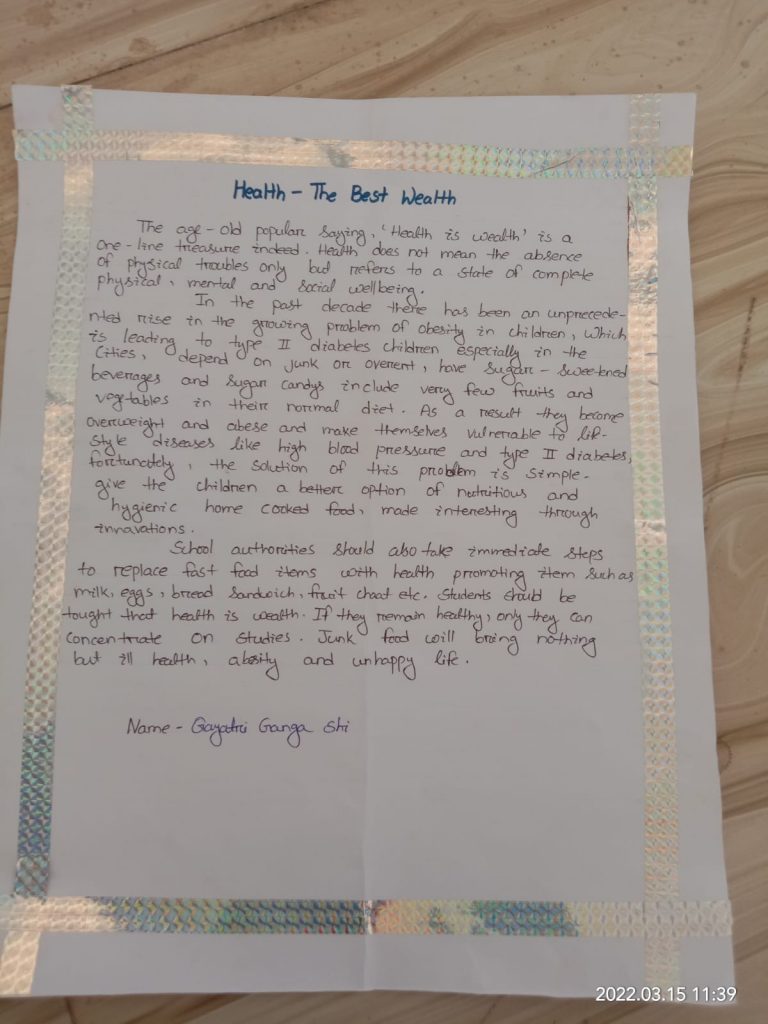 Health - The Best Wealth
The age-old popular saying, 'Health is wealth' is a
one-line treasure indeed. Health does not mean the absence
of physical troubles only but refers to a state of complete
physical, mental and social wellbeing.
In the past decade there has been an unprecede-
nted rise in the growing problem of obesity in children, which
is leading to type II diabetes children especially in the
cities, depend on junk or overent, have sugar-sweetened
beverages and sugar candys include very few fruits and
vegetables in their normal diet. As a result they become
overweight and abese and make themselves vulnerable to life-
style diseases like high blood pressure and type II diabetes,
fortunately, the solution of this problem is simple-
give the children a better option of nutritious and
hygienic home cooked food, made interesting through
innavations.
School authorities should also take immediate steps
to replace fast food items with health promoting item such as
milk, eggs, bread sandwich, fruit chaat etc. Students should be
tought that health is wealth. If they remain healthy, only they can
concentrate on studies. Junk food will bring nothing
but ill health, abesity and unhappy life.
Name - Gayatri Ganga Shi
2022.03.15 11:39